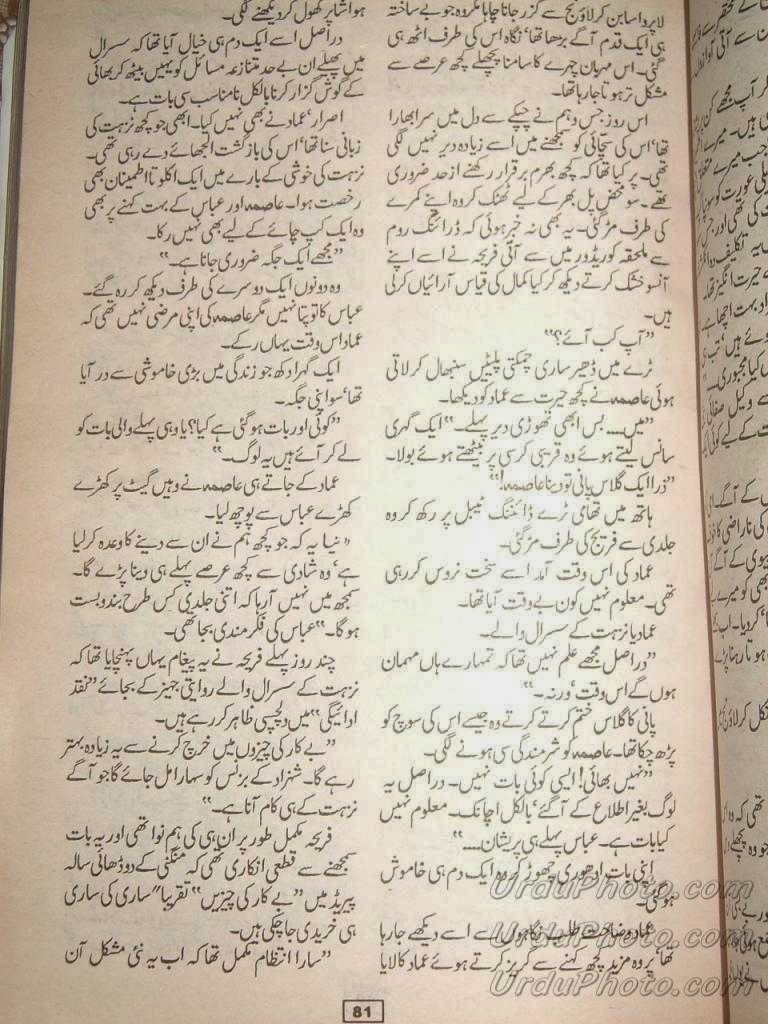 لاپروا سا بن کر لاؤنج سے گزر جانا چاہا مگر وہ جو بے ساختہ
ہی ایک قدم آگے بڑھا تھا، نگاہ اس کی طرف اٹھ ہی
گئی۔ اس مہربان چہرے کا سامنا پچھلے کچھ عرصے سے
مشکل تر ہوتا جا رہا تھا۔
اس روز جس وہم نے چپکے سے دل میں سر ابھارا
تھا، اس کی سچائی کو سمجھنے میں اسے زیادہ دیر نہیں لگی
تھی۔ پر کیا تھا کہ کچھ بھرم برقرار رکھنے ازحد ضروری
تھے۔ سو محض پل بھر کے لیے ٹھٹک کر وہ اپنے کمرے
کی طرف مڑ گئی۔ یہ بھی نہ خبر ہوئی کہ ڈرائنگ روم
سے ملحقہ کوریڈور میں سے آتی فریحہ نے اسے اپنے
آنسو خشک کرتے دیکھ کر کیا کمال کی قیاس آرائیاں کر لی
ہیں۔
”آپ کب آئے؟“
ٹرے میں ڈھیر ساری چمکتی پلیٹیں سنبھال کر لاتی
ہوئی عاصمہ نے کچھ حیرت سے عماد کو دیکھا۔
”میں.... بس ابھی تھوڑی دیر پہلے۔“ ایک گہری
سانس لیتے ہوئے وہ قریبی کرسی پر بیٹھتے ہوئے بولا۔
”ذرا ایک گلاس پانی تو دینا عاصمہ!“
ہاتھ میں تھامی ٹرے ڈائننگ ٹیبل پر رکھ کر وہ
جلدی سے فریج کی طرف مڑ گئی۔
عماد کی اس وقت آمد اسے سخت نروس کر رہی
تھی۔ معلوم نہیں کون بے وقت آیا تھا۔
عماد یا نزہت کے سسرال والے۔
”دراصل مجھے علم نہیں تھا کہ تمہارے ہاں مہمان
ہوں گے اس وقت، ورنہ۔“
پانی کا گلاس ختم کرتے کرتے وہ جیسے اس کی سوچ کو
پڑھ چکا تھا۔ عاصمہ کو شرمندگی سی ہونے لگی۔
”نہیں بھائی! ایسی کوئی بات نہیں۔ دراصل یہ
لوگ بغیر اطلاع کے آگئے، بالکل اچانک۔ معلوم نہیں
کیا بات ہے۔ عباس پہلے ہی پریشان....“
اپنی بات ادھوری چھوڑ کر وہ ایک دم ہی خاموش
ہو گئی۔
عماد وضاحت طلب نگاہوں سے اسے دیکھے جا رہا
تھا، پر وہ مزید کچھ کہنے سے گریز کرتے ہوئے عماد کا لایا
ہوا شاپر کھول کر دیکھنے لگی۔
دراصل اسے ایک دم ہی خیال آیا تھا کہ سسرال
میں پھیلے ان بے حد متنازعہ مسائل کو یہیں بیٹھ کر بھائی
کے گوش گزار کرنا بالکل نامناسب سی بات ہے۔
اصرار، عماد نے بھی نہیں کیا۔ ابھی جو کچھ نزہت کی
زبانی سنا تھا، اس کی بازگشت الجھائے دے رہی تھی۔
نزہت کی خوشی کے بارے میں ایک اکلوتا اطمینان بھی
رخصت ہوا۔ عاصمہ اور عباس کے بہت کہنے پر بھی
وہ ایک کپ چائے کے لیے بھی نہیں رکا۔
”مجھے ایک جگہ ضروری جانا ہے۔“
وہ دونوں ایک دوسرے کی طرف دیکھ کر رہ گئے۔
عباس کا تو پتا نہیں مگر عاصمہ کی اپنی مرضی نہیں تھی کہ
عماد اس وقت یہاں رکے۔
ایک گہرا دکھ جو زندگی میں بڑی خاموشی سے در آیا
تھا، سو اپنی جگہ۔
”کوئی اور بات ہو گئی ہے کیا؟ یا وہی پہلے والی بات کو
لے کر آئے ہیں یہ لوگ۔“
عماد کے جاتے ہی عاصمہ نے وہیں گیٹ پر کھڑے
کھڑے عباس سے پوچھ لیا۔
”نیا یہ کہ جو کچھ ہم نے ان سے دینے کا وعدہ کر لیا
ہے، وہ شادی سے کچھ عرصے پہلے ہی دینا پڑے گا۔
سمجھ میں نہیں آ رہا کہ اتنی جلدی کس طرح بندوبست
ہو گا۔“ عباس کی فکر مندی بجا تھی۔
چند روز پہلے فریحہ نے یہ پیغام یہاں پہنچایا تھا کہ
نزہت کے سسرال والے روایتی جہیز کے بجائے ”نقد
ادائیگی“ میں دلچسپی ظاہر کر رہے ہیں۔
”بے کار کی چیزوں میں خرچ کرنے سے یہ زیادہ بہتر
رہے گا۔ شہزاد کے بزنس کو سہارا مل جائے گا جو آگے
نزہت کے ہی کام آنا ہے۔“
فریحہ مکمل طور پر ان ہی کی ہم نوا تھی اور یہ بات
سمجھنے سے قطعی انکاری تھی کہ منگنی کے دو ڈھائی سالہ
پیریڈ میں ”بے کار کی چیزیں“ تقریباً ساری کی ساری
ہی خریدی جا چکی ہیں۔
”سارا انتظام مکمل تھا کہ اب یہ نئی مشکل آن
81
UrduPhoto.com
UrduPhoto.com
UrduPhoto.com